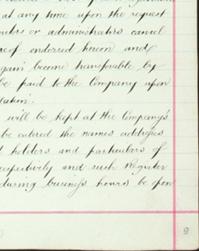 at any time upon the request
or administrators cancel
endorsed hereon and
again become transferable by
be paid to the Company upon
will be kept at the Company's
be entered the names addresses
holders and particulars of
respectively and such Register
during business hours be